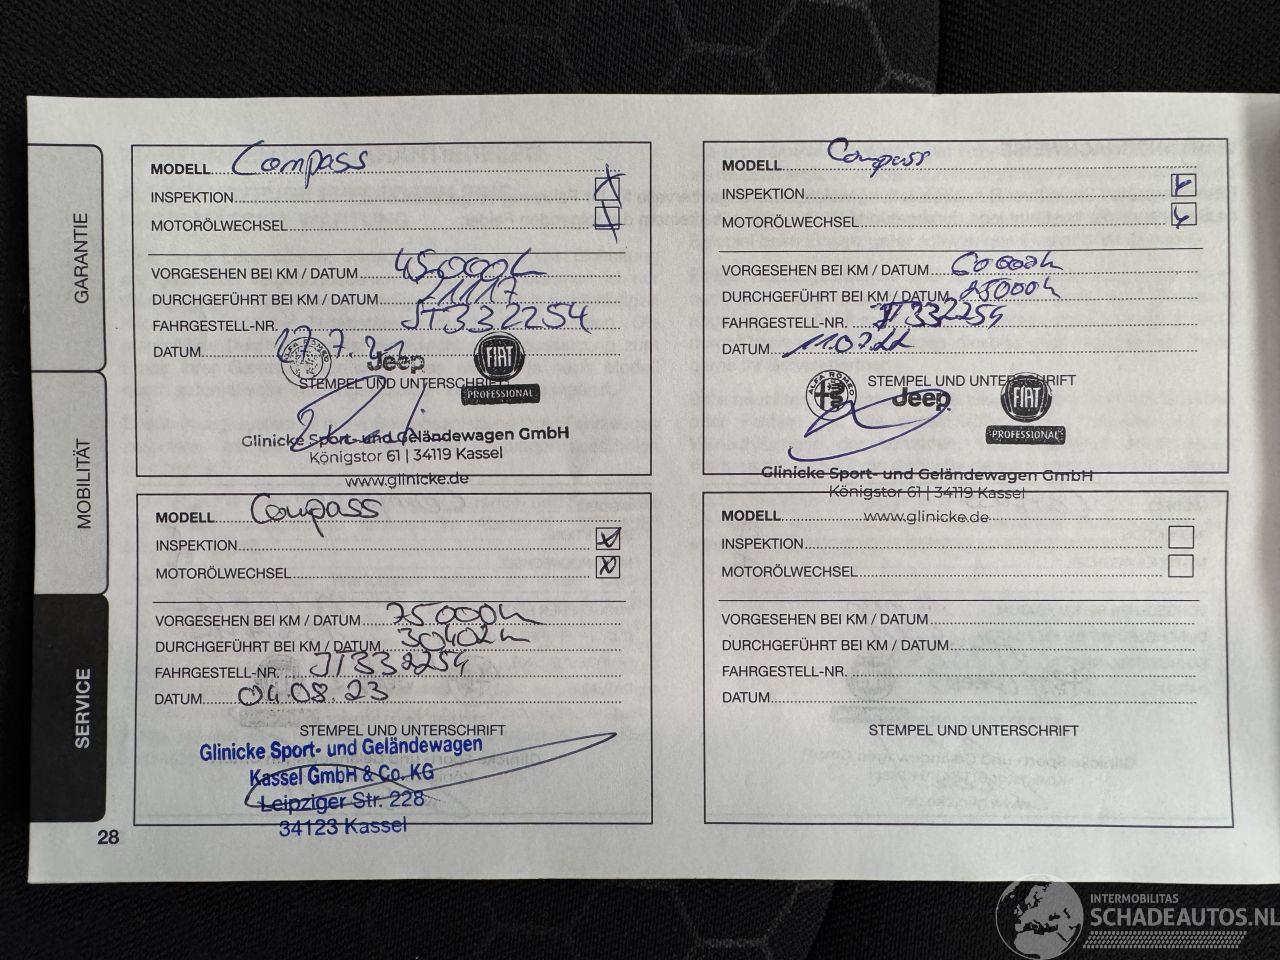 GARANTIE
MOBILITÄT
SERVICE
28
MODELL Compass
INSPEKTION
MOTORÖLWECHSEL
VORGESEHEN BEI KM / DATUM 45000k
DURCHGEFÜHRT BEI KM / DATUM 21117
FAHRGESTELL-NR. JT332254
DATUM 27.7.21
ALFA ROMEO Jeep FIAT
STEMPEL UND UNTERSCHRIFT
PROFESSIONAL
Glinicke Sport- und Geländewagen GmbH
Königstor 61 | 34119 Kassel
www.glinicke.de
MODELL Compass
INSPEKTION
MOTORÖLWECHSEL
VORGESEHEN BEI KM / DATUM 60000k
DURCHGEFÜHRT BEI KM / DATUM 25000k
FAHRGESTELL-NR. JT332254
DATUM 11.07.22
STEMPEL UND UNTERSCHRIFT
ALFA ROMEO Jeep FIAT
PROFESSIONAL
Glinicke Sport- und Geländewagen GmbH
Königstor 61 | 34119 Kassel
www.glinicke.de
MODELL Compass
INSPEKTION
MOTORÖLWECHSEL
VORGESEHEN BEI KM / DATUM 75000k
DURCHGEFÜHRT BEI KM / DATUM 30402k
FAHRGESTELL-NR. JT332254
DATUM 04.08.23
STEMPEL UND UNTERSCHRIFT
Glinicke Sport- und Geländewagen
Kassel GmbH & Co. KG
Leipziger Str. 228
34123 Kassel
MODELL
INSPEKTION
MOTORÖLWECHSEL
VORGESEHEN BEI KM / DATUM
DURCHGEFÜHRT BEI KM / DATUM
FAHRGESTELL-NR.
DATUM
STEMPEL UND UNTERSCHRIFT
INTERMOBILITAS
SCHADEAUTOS.NL